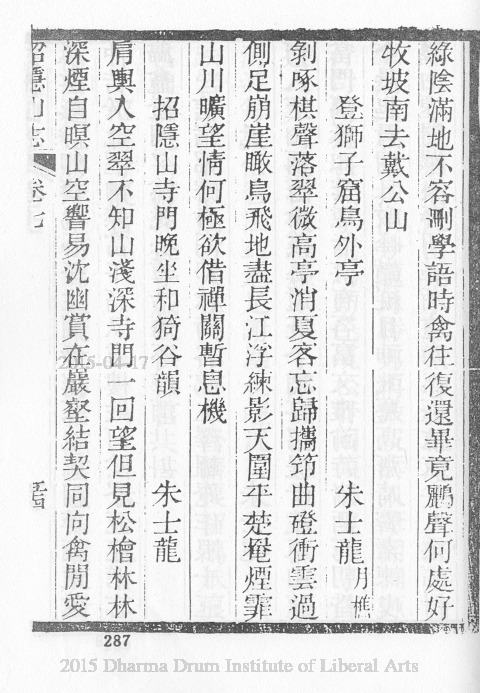 綠陰滿地不容刪學語時禽往復還畢竟鸝聲何處好
牧坡南去戴公山
登獅子窟鳥外亭 朱士龍 月樵
剝啄棋聲落翠微高亭消夏客忘歸攜筇曲磴衝雲過
側足崩崖瞰鳥飛地盡長江浮練影天圍平楚掩煙霏
山川曠望情何極欲借禪關暫息機
招隱山寺門晚坐和猗谷韻 朱士龍
肩輿入空翠不知山淺深寺門一回望但見松檜林林
深煙自暝山空響易沈幽賞在巖壑結契同向禽閒愛
招隱山志 卷七
287
2015-04-17
2015 Dharma Drum Institute of Liberal Arts